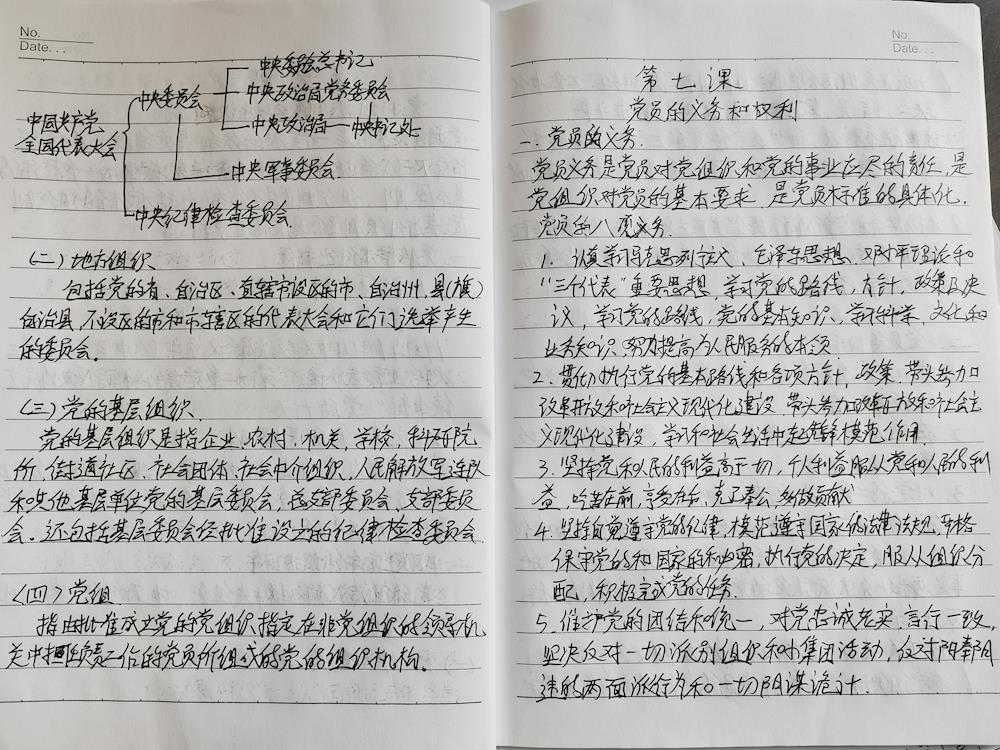 No.
Date. . .
中央委员会总书记
中央委员会
中央政治局常务委员会
中国共产党
全国代表大会
中央政治局——中央书记处
中央军事委员会
中央纪律检查委员会
(二)地方组织
包括党的省、自治区、直辖市设区的市、自治州、县(旗)
自治县、不设区的市和市辖区的代表大会和它们选举产生
的委员会。
(三)党的基层组织
党的基层组织是指企业、农村、机关、学校、科研院
所、街道社区、社会团体、社会中介组织、人民解放军连队
和其他基层单位党的基层委员会、总支部委员会、支部委员
会。还包括基层委员会经批准设立的纪律检查委员会
(四)党组
指由批准成立党的党组织指定在非党组织的领导机
关中担任负责工作的党员所组成的党的组织机构。
No.
Date. . .
第七课
党员的义务和权利
一、党员的义务
党员义务是党员对党组织和党的事业应尽的责任,是
党组织对党员的基本要求,是党员标准的具体化。
党员的八项义务
1、认真学习马克思列宁主义、毛泽东思想、邓小平理论和
“三个代表”重要思想,学习党的路线,方针,政策及决
议,学习党的路线,党的基本知识,学习科学、文化和
业务知识,努力提高为人民服务的本领
2、贯彻执行党的基本路线和各项方针,政策,带头参加
改革开放和社会主义现代化建设,带头参加改革开放和社会主
义现代化建设,学习和社会生活中起先锋模范作用
3、坚持党和人民的利益高于一切,个人利益服从党和人民的利
益,吃苦在前,享受在后,克己奉公,多做贡献
4、坚持自觉遵守党的纪律,模范遵守国家的法律法规,严格
保守党的和国家的秘密,执行党的决定,服从组织分
配,积极完成党的任务.
5、维护党的团结和统一,对党忠诚老实,言行一致,
坚决反对一切派别组织和小集团活动,反对阳奉阴
违的两面派行为和一切阴谋诡计.